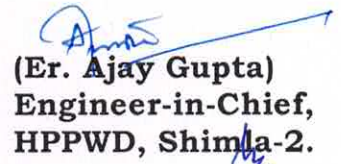 (Er. Ajay Gupta)
Engineer-in-Chief,
HPPWD, Shimla-2.